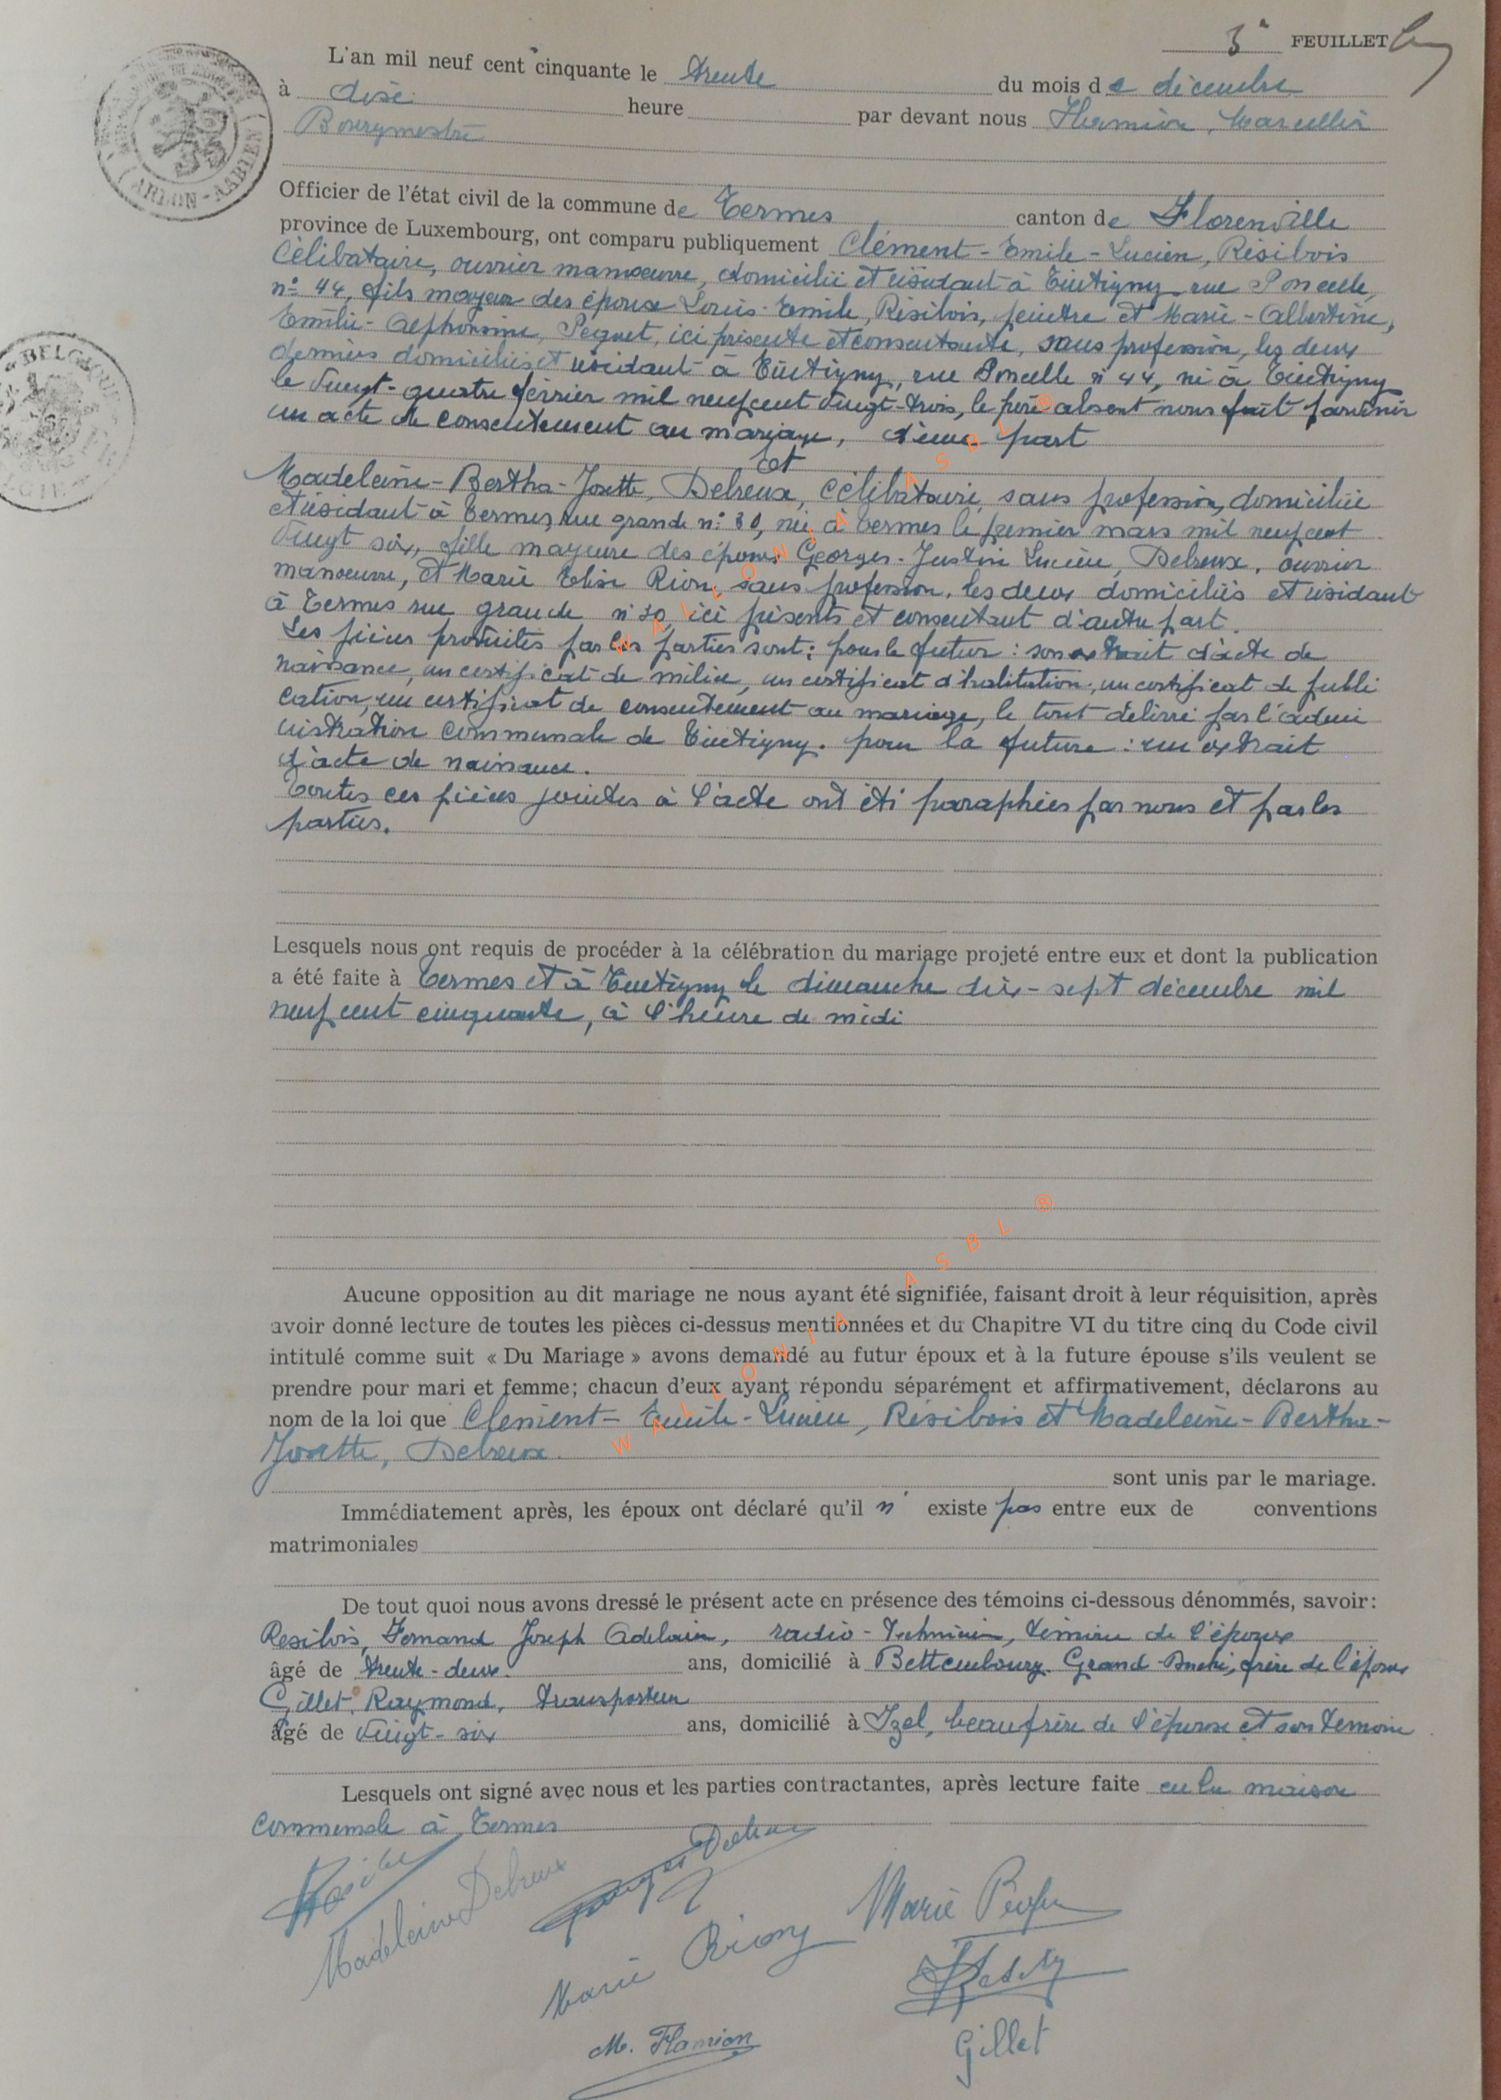 3e FEUILLET
L'an mil neuf cent cinquante le trente du mois de décembre
à dix heure par devant nous Flamion, Marcellin
Bourgmestre
Officier de l'état civil de la commune de Termes canton de Florenville
province de Luxembourg, ont comparu publiquement Clément-Emile-Lucien, Résibois
célibataire, ouvrier manœuvre, domicilié et résidant à Tintigny rue Poncelle,
n° 44, fils majeur des époux Louis-Emile, Résibois, peintre et Marie-Albertine,
Emélie-Alphonsine, Peiguet, ici présente et consentante, sans profession, les deux
derniers domiciliés et résidant à Tintigny, rue Poncelle n° 44, né à Tintigny
le vingt-quatre février mil neuf cent vingt-trois, le père absent nous fait parvenir
un acte de consentement au mariage, d'une part
et
Madeleine-Bertha-Josette, Delreux, célibataire, sans profession, domiciliée
et résidant à Termes, rue grande n° 30, née à Termes le premier mars mil neuf cent
vingt six, fille majeure des époux Georges-Justin Lucien, Delreux, ouvrier
manœuvre, et Marie Elise Rion, sans profession, les deux domiciliés et résidant
à Termes rue grande n° 30 ici présents et consentant d'autre part.
Les pièces produites par les parties sont : pour le futur : son extrait d'acte de
naissance, un certificat de milice, un certificat d'habitation, un certificat de publi
cation, un certificat de consentement au mariage, le tout délivré par l'admi
nistration communale de Tintigny. pour la future : un extrait
d'acte de naissance.
Toutes ces pièces jointes à l'acte ont été paraphées par nous et par les
parties.
Lesquels nous ont requis de procéder à la célébration du mariage projeté entre eux et dont la publication
a été faite à Termes et à Tintigny le dimanche dix-sept décembre mil
neuf cent cinquante, à l'heure de midi
Aucune opposition au dit mariage ne nous ayant été signifiée, faisant droit à leur réquisition, après
avoir donné lecture de toutes les pièces ci-dessus mentionnées et du Chapitre VI du titre cinq du Code civil
intitulé comme suit « Du Mariage » avons demandé au futur époux et à la future épouse s'ils veulent se
prendre pour mari et femme; chacun d'eux ayant répondu séparément et affirmativement, déclarons au
nom de la loi que Clément-Emile-Lucien, Résibois et Madeleine-Bertha-
Josette, Delreux.
sont unis par le mariage.
Immédiatement après, les époux ont déclaré qu'il n' existe pas entre eux de conventions
matrimoniales
De tout quoi nous avons dressé le présent acte en présence des témoins ci-dessous dénommés, savoir:
Resibois, Fernand Joseph Adelain, radio-technicien, témoin de l'époux
âgé de trente-deux. ans, domicilié à Bettembourg Grand-Duché, frère de l'époux
Gillet, Raymond, transporteur
âgé de vingt-six ans, domicilié à Izel, beaufrère de l'épouse et son témoin
Lesquels ont signé avec nous et les parties contractantes, après lecture faite en la maison
communale à Termes
Madeleine Delreux
Georges Delreux
Marie Rion
Marie
M. Flamion
Gillet
ARLON - AARLEN
BELGIQUE
WALLONIA ASBL ®
WALLONIA ASBL ®